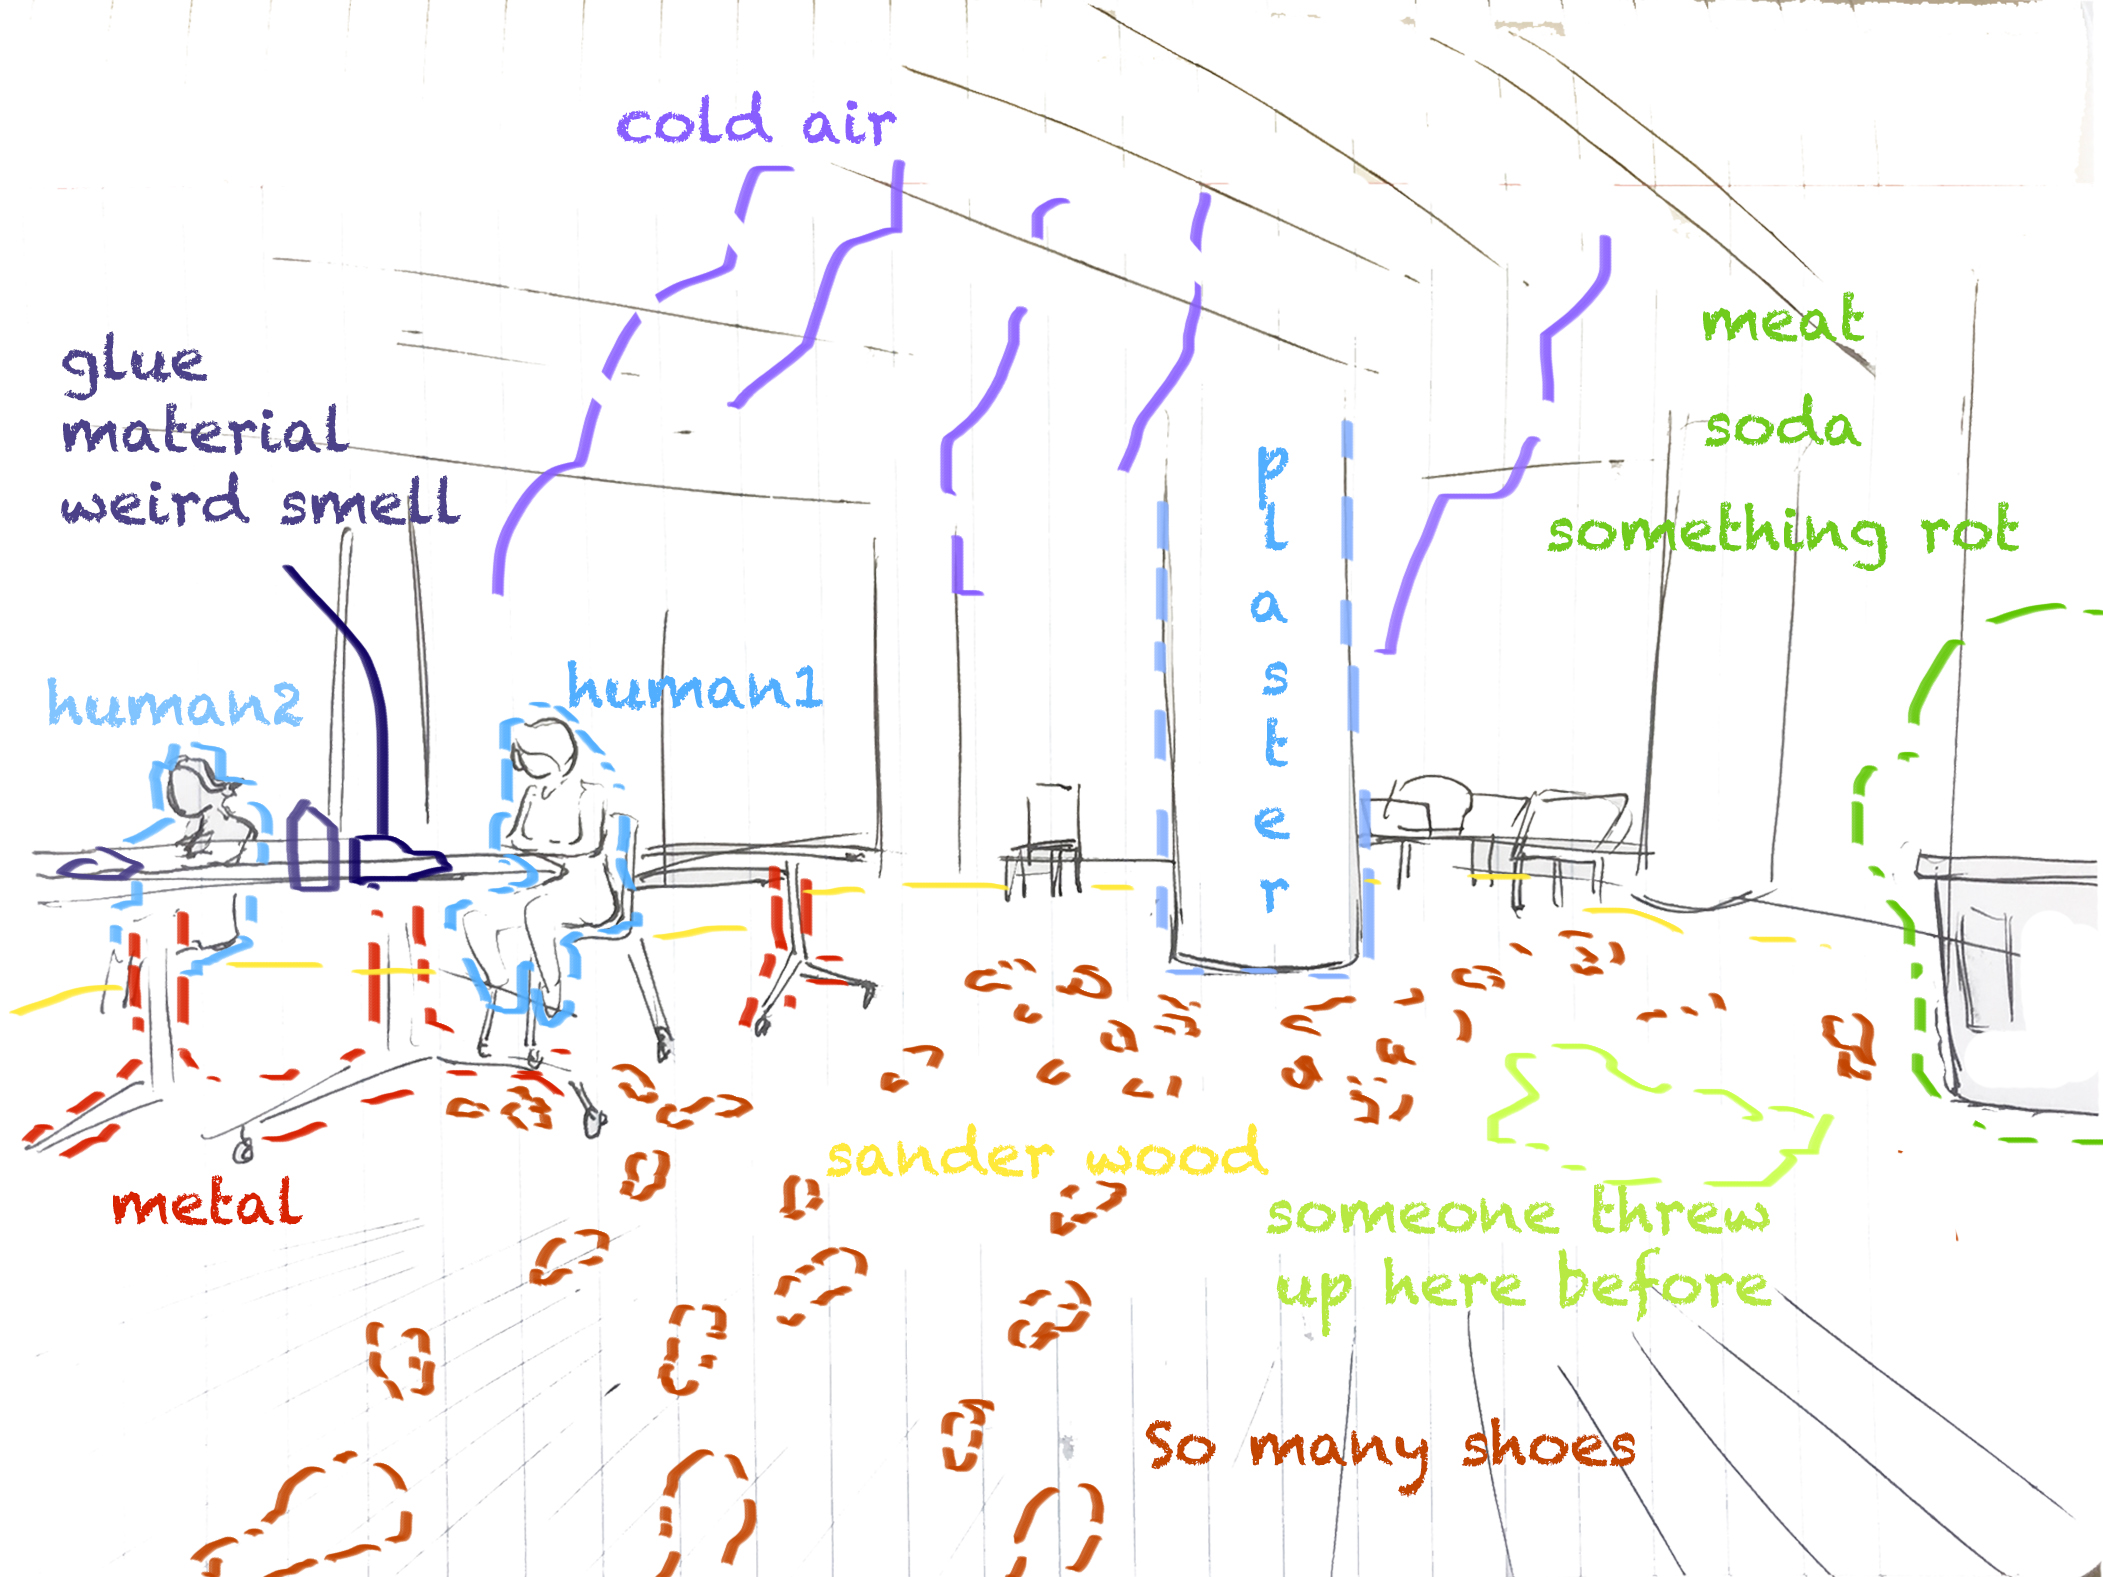 cold air
glue
material
weird smell
meat
soda
something rot
human2
human1
plaster
metal
sander wood
someone threw
up here before
So many shoes